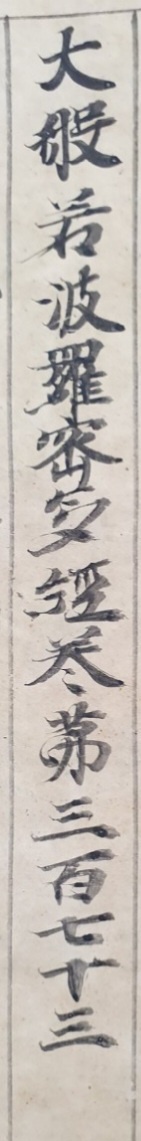 大般若波羅密多經卷第三百七十三